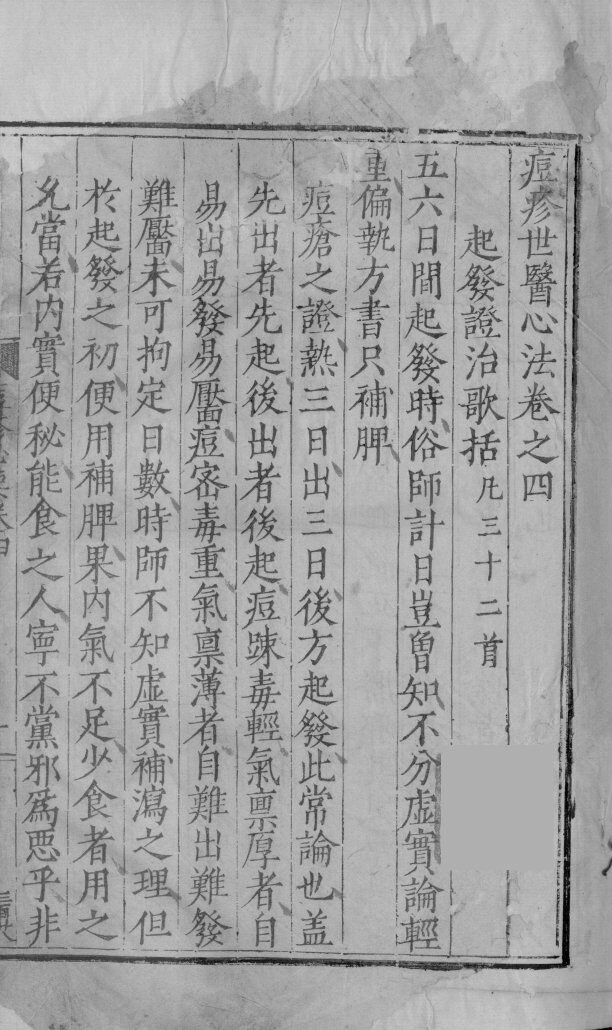 痘疹世醫心法卷之四
起發證治歌括凡三十二首
五六日間起發時俗師計日豈曾知不分虛實論輕
重偏執方書只補脾
痘瘡之證熱三日出三日後方起發此常論也盖
先出者先起後出者後起痘踈毒輕氣禀厚者自
易出易發易靨痘密毒重氣禀薄者自難出難發
難靨未可拘定日數時師不知虛實補瀉之理但
於起發之初便用補脾果內氣不足少食者用之
允當若內實便秘能食之人寧不黨邪爲惡乎非